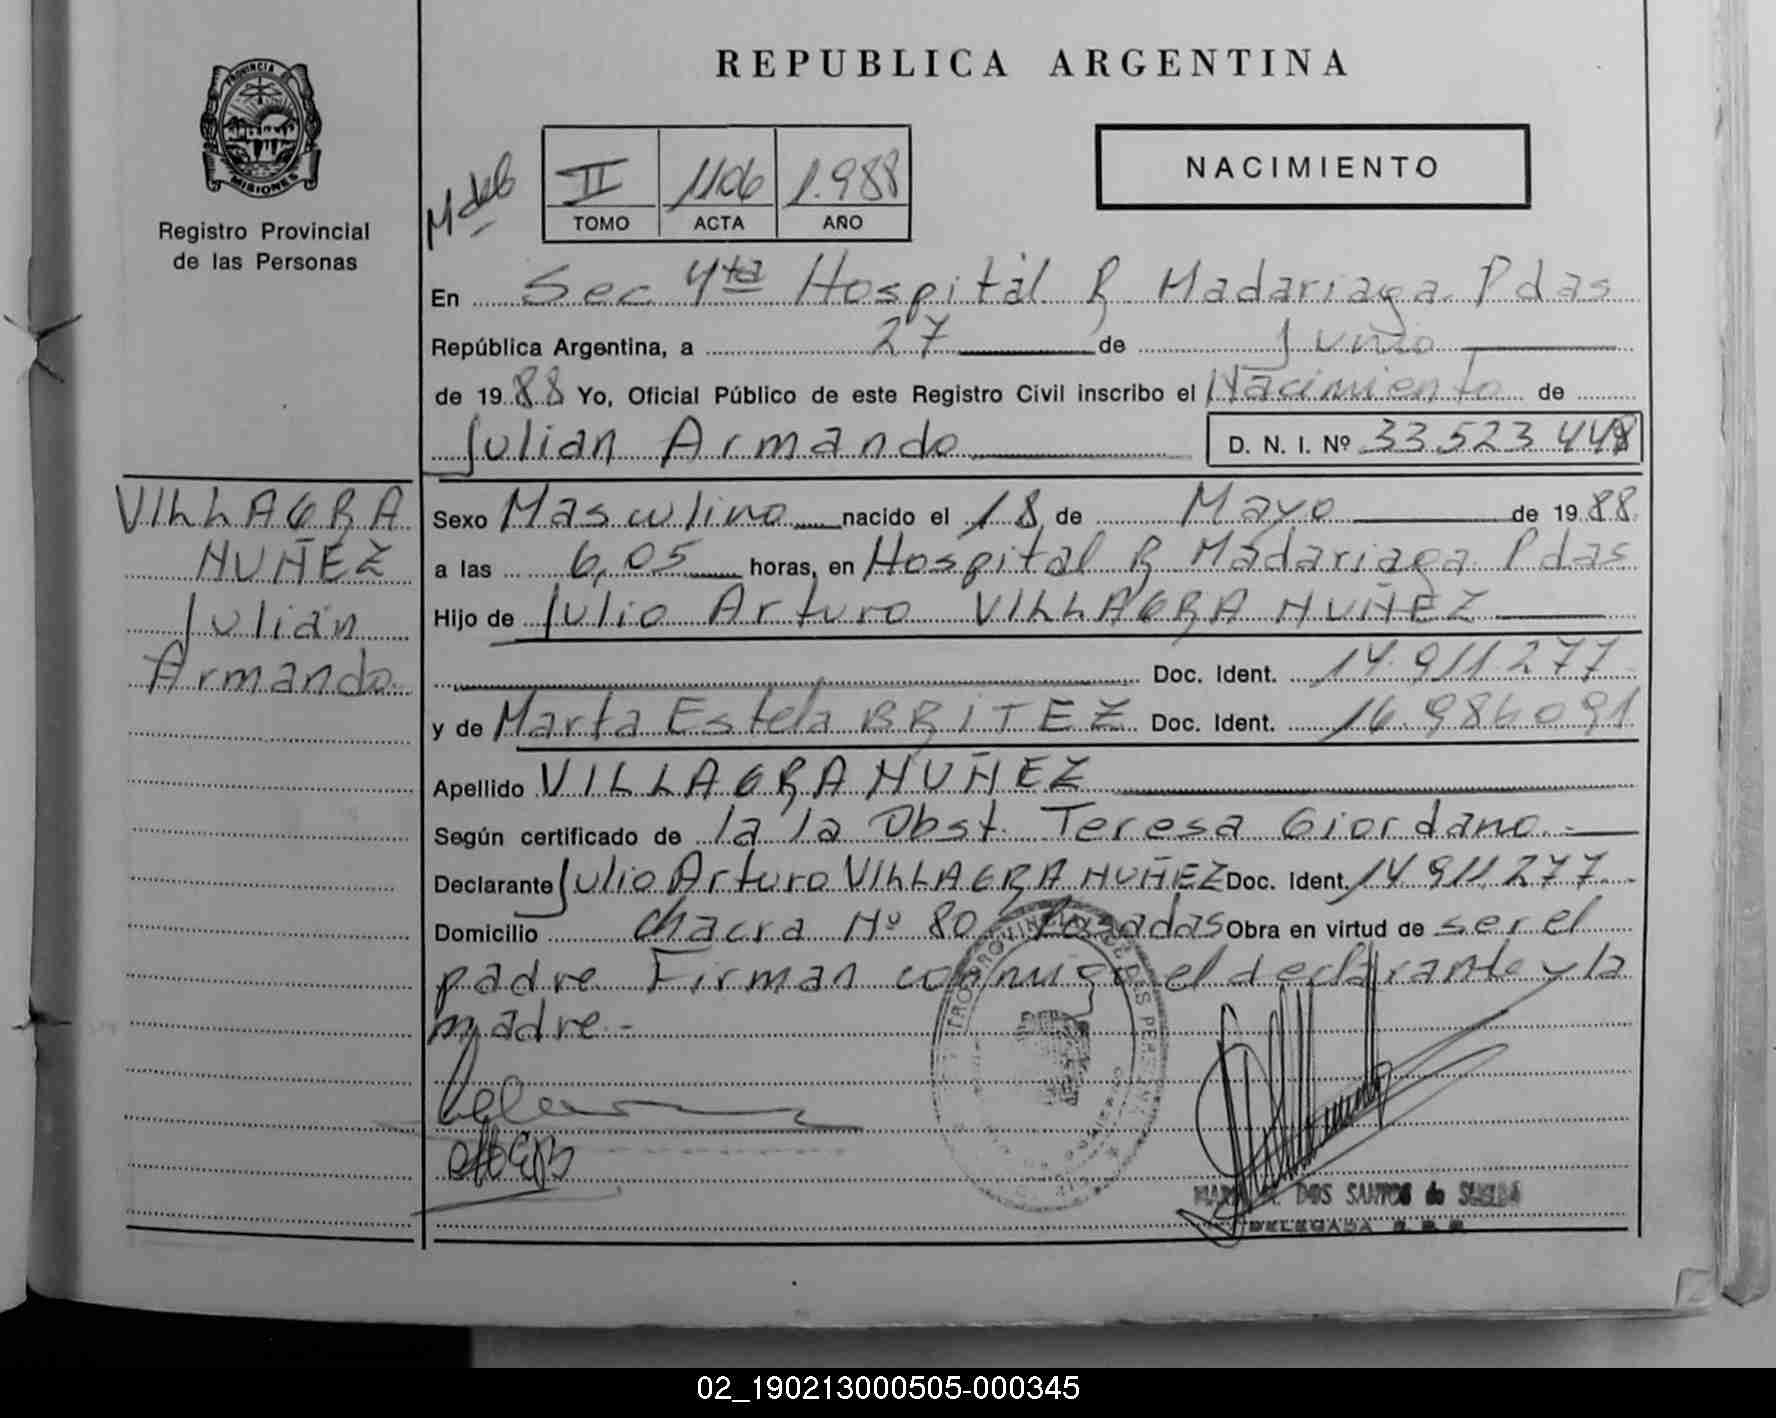 REPUBLICA ARGENTINA
PROVINCIA DE
MISIONES
Registro Provincial
de las Personas
II 1106 1.988
TOMO ACTA AÑO
NACIMIENTO
En Sec 4ta Hospital R Madariaga Pdas
República Argentina, a 27 de Junio
de 1988 Yo, Oficial Público de este Registro Civil inscribo el Nacimiento de
Julian Armando D. N. I. Nº 33.523.448
VILLAGRA
NUÑEZ
Julián
Armando
Sexo Masculino nacido el 18 de Mayo de 1988
a las 6,05 horas, en Hospital R Madariaga Pdas
Hijo de Julio Arturo VILLAGRA NUÑEZ
Doc. Ident. 14.911.277
y de Marta Estela BRITEZ Doc. Ident. 16.986091
Apellido VILLAGRA NUÑEZ
Según certificado de la la Obst. Teresa Giordano.-
Declarante Julio Arturo VILLAGRA NUÑEZ Doc. Ident. 14.911.277
Domicilio chacra Nº 80 Posadas Obra en virtud de ser el
padre Firman conmigo el declarante y la
madre.-
DOS SANTOS de
DELEGADA
02_190213000505-000345